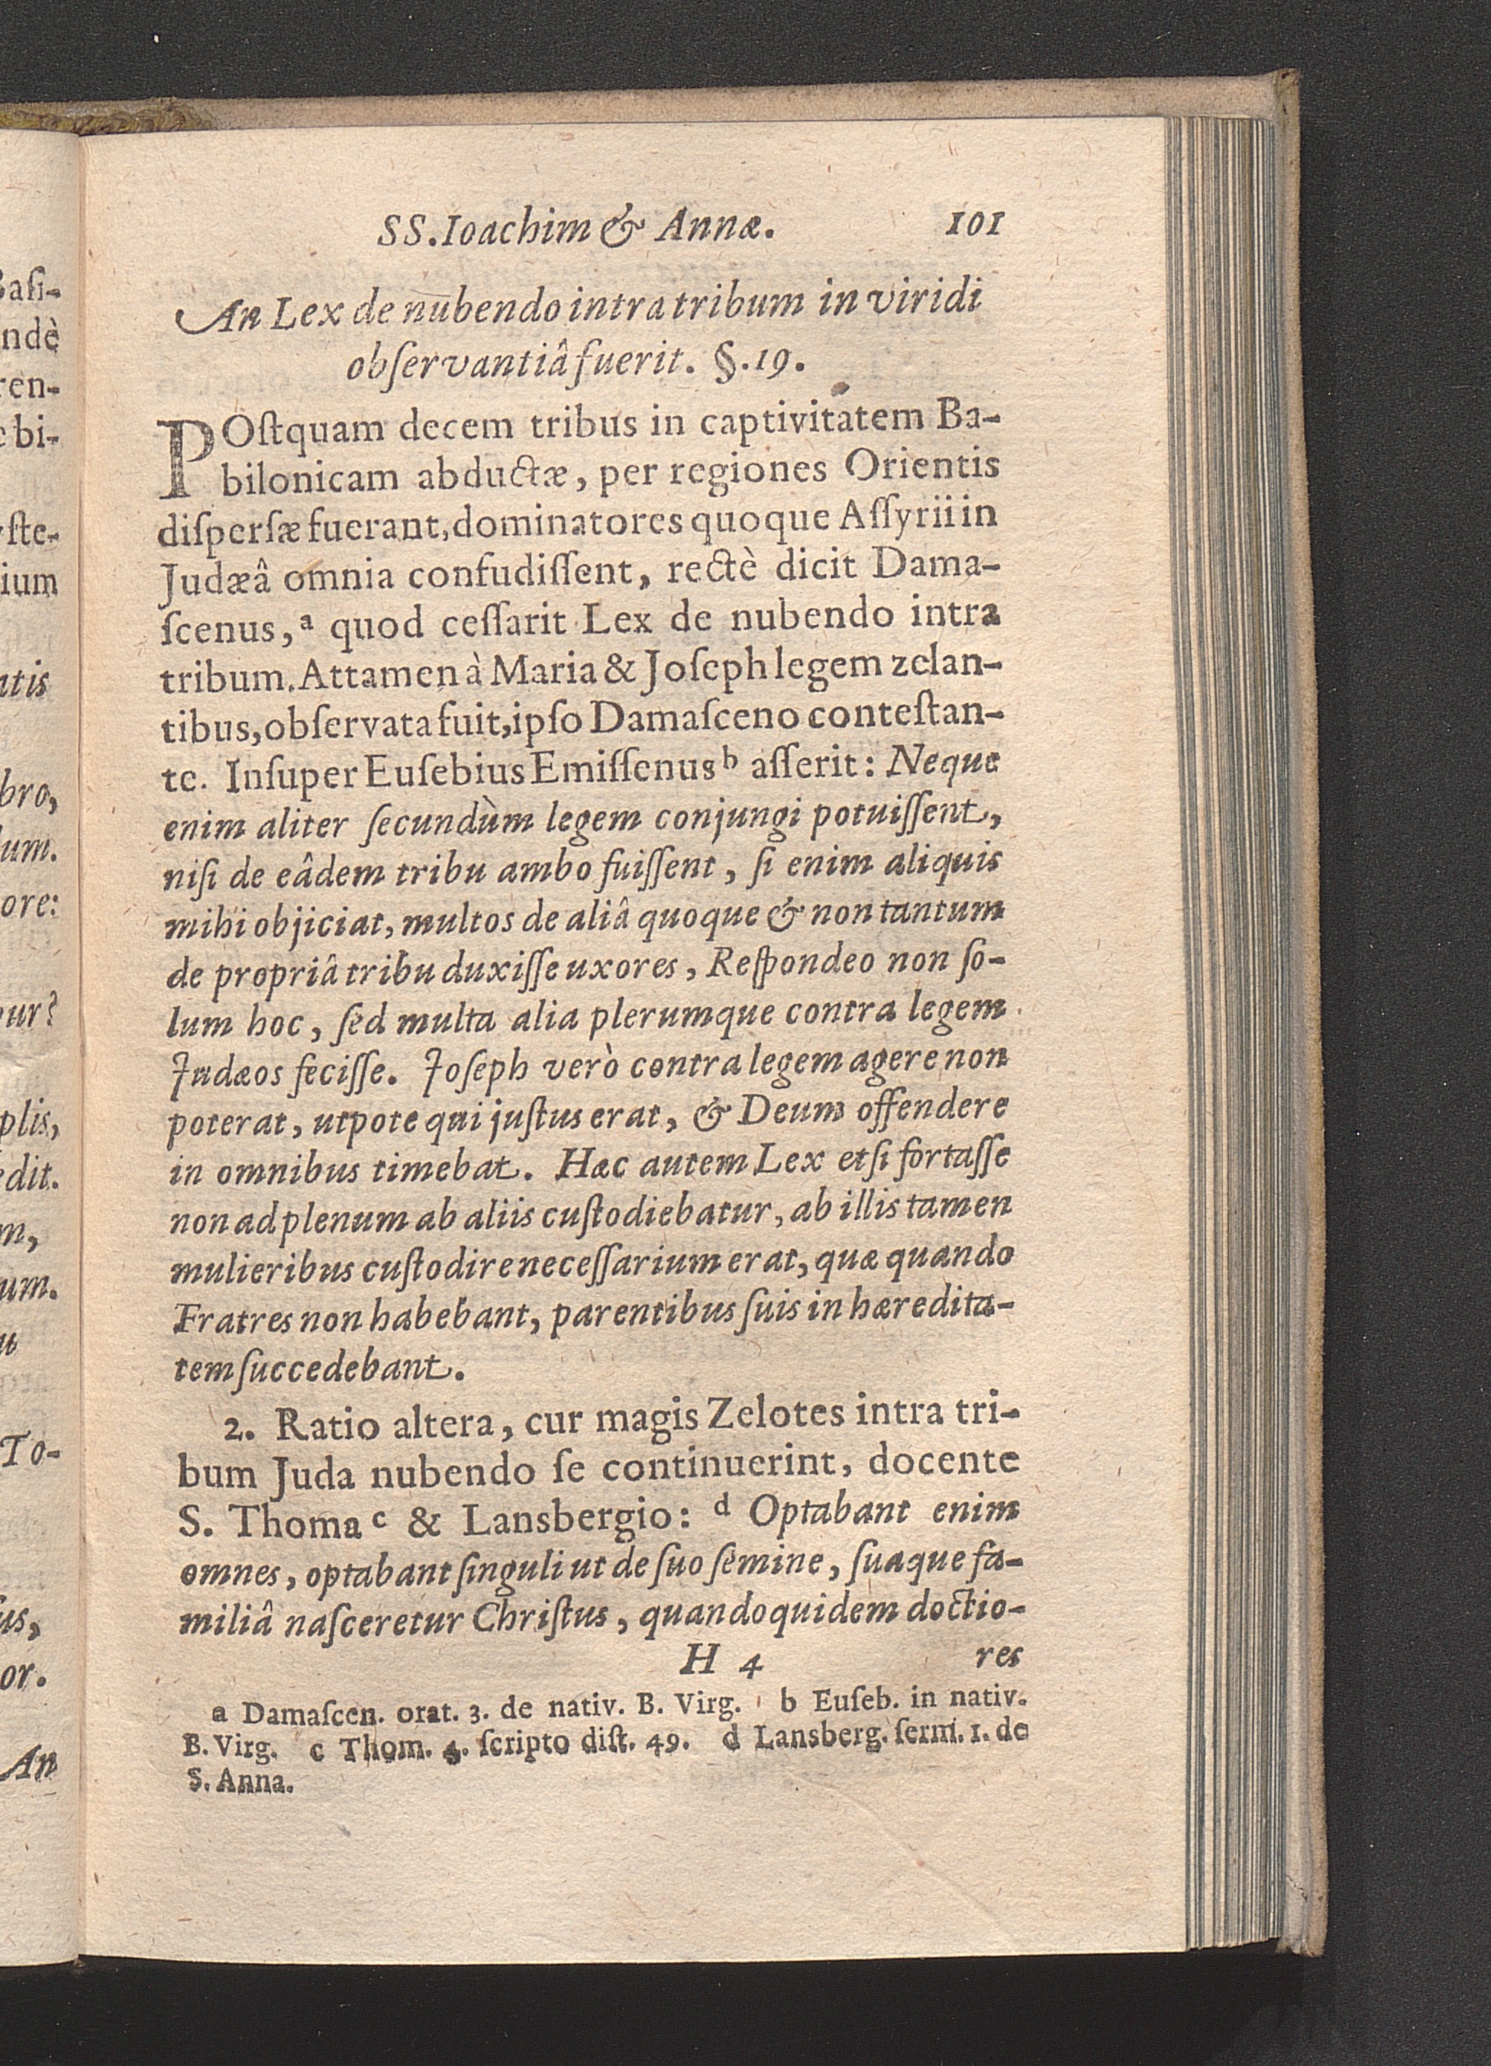 SS. Ioachim & Annæ. 101
An Lex de nubendo intra tribum in viridi
obſervantiâ fuerit. §. 19.
POſtquam decem tribus in captivitatem Ba-
bilonicam abductæ, per regiones Orientis
diſperſæ fuerant, dominatores quoque Aſſyrii in
Judæâ omnia confudiſſent, rectè dicit Dama-
ſcenus, a quod ceſſarit Lex de nubendo intra
tribum. Attamen à Maria & Joſeph legem zelan-
tibus, obſervata fuit, ipſo Damaſceno conteſtan-
te. Inſuper Euſebius Emiſſenus b aſſerit: Neque
enim aliter ſecundùm legem conjungi potuiſſent,
niſi de eâdem tribu ambo fuiſſent, ſi enim aliquis
mihi objiciat, multos de aliâ quoque & non tantum
de propriâ tribu duxiſſe uxores, Reſpondeo non ſo-
lum hoc, ſed multa alia plerumque contra legem
Judæos feciſſe. Joſeph verò contra legem agere non
poterat, utpote qui juſtus erat, & Deum offendere
in omnibus timebat. Hæc autem Lex etſi fortaſſe
non ad plenum ab aliis cuſtodiebatur, ab illis tamen
mulieribus cuſtodire neceſſarium erat, quæ quando
Fratres non habebant, parentibus ſuis in hæredita-
tem ſuccedebant.
2. Ratio altera, cur magis Zelotes intra tri-
bum Juda nubendo ſe continuerint, docente
S. Thoma c & Lansbergio: d Optabant enim
omnes, optabant ſinguli ut de ſuo ſemine, ſuaque fa-
miliâ naſceretur Chriſtus, quandoquidem doctio-
H 4 res
a Damaſcen. orat. 3. de nativ. B. Virg. b Euſeb. in nativ.
B. Virg. c Thom. 4. ſcripto diſt. 49. d Lansberg. ſerm. 1. de
S. Anna.
Baſi-
ndè
ren-
bi-
ſte-
ium
atis
bro,
lum.
ore:
ur?
plis,
edit.
m,
um.
To-
us,
or.
An